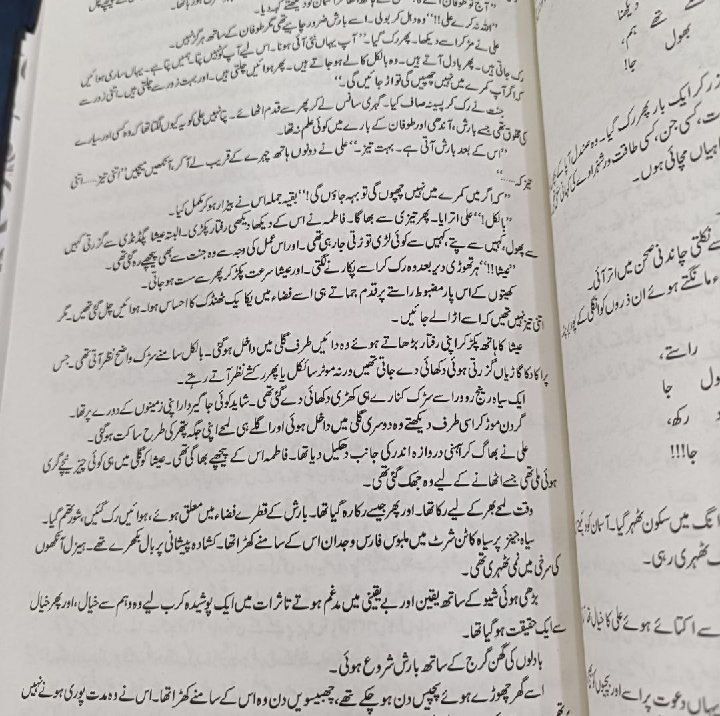 "اللہ نہ کرے علی!!" وہ دہل کر بولی۔ اسے بارش ضرور چاہیے تھی مگر طوفان کے ساتھ ہرگز نہیں۔
علی نے مڑ کر اسے دیکھا۔ پھر رک گیا۔ "آپ یہاں نئی آئی ہونا۔ اس لیے آپ کو نہیں پتا۔ ہمیں پتا ہے۔ یہاں ساری ہوائیں
رک جاتی ہیں۔ پھر بادل آتے ہیں۔ وہ بالکل کالے ہو جاتے ہیں۔ پھر ہوائیں چلتی ہیں۔ اور بہت زور سے چلتی ہیں۔ اتنی زور سے
کہ اگر آپ کمرے میں نہیں چھپیں گی تو اڑ جائیں گی۔"
جنت نے رک کر پسینہ صاف کیا۔ گہری سانس لے کر پھر سے قدم اٹھائے۔ پتا نہیں علی کو یہ کیوں لگتا تھا کہ وہ کسی اور سیارے
کی مخلوق تھی جسے بارش، آندھی اور طوفان کے بارے میں کوئی علم نہ تھا۔
"اس کے بعد بارش آتی ہے۔ بہت تیز۔" علی نے دونوں ہاتھ چہرے کے قریب لے آ کر آنکھیں میچیں "اتنی تیز..... اتنی
تیز کہ....."
"کہ اگر میں کمرے میں نہیں چھپوں گی تو بہہ جاؤں گی!" بقیہ جملہ اس نے بیزار ہو کر مکمل کیا۔
"بالکل!" علی اترایا۔ پھر تیزی سے بھاگا۔ فاطمہ نے اس کے دیکھا دیکھی رفتار پکڑی۔ البتہ عیشا پگڈنڈی سے گزرتی کہیں
سے پھول، کہیں سے پتے، کہیں سے کوئی لڑی توڑتی جا رہی تھی۔ اور اس عمل کی وجہ سے وہ جنت سے بھی پیچھے رہ گئی تھی۔
"عیشا!!" ہر تھوڑی دیر بعد وہ رک کر اسے پکارنے لگتی۔ اور عیشا سرعت پکڑ کر پھر سے سست ہو جاتی۔
کھیتوں کے اس پار مضبوط راستے پر قدم جماتے ہی اسے فضاء میں یکا یک ٹھنڈک کا احساس ہوا۔ ہوائیں چل گئی تھیں۔ مگر
اتنی تیز نہیں تھیں کہ اسے اڑا لے جائیں۔
عیشا کا ہاتھ پکڑ کر اپنی رفتار بڑھاتے ہوئے وہ دائیں طرف گلی میں داخل ہو گئی۔ بالکل سامنے سڑک واضح نظر آتی تھی۔ جس
پر اکا دکا گاڑیاں گزرتی ہوئی دکھائی دے جاتی تھیں ورنہ موٹر سائیکل یا پھر رکشے نظر آتے رہتے۔
ایک سیاہ رینج روور اسے سڑک کنارے ہی کھڑی دکھائی دے گئی تھی۔ شاید کوئی جاگیردار اپنی زمینوں کے دورے پر تھا۔
گردن موڑ کر اسی طرف دیکھتے وہ دوسری گلی میں داخل ہوئی اور اگلے ہی لمحے اپنی جگہ پتھر کی طرح ساکت ہو گئی۔
علی نے بھاگ کر آہنی دروازہ اندر کی جانب دھکیل دیا تھا۔ فاطمہ اس کے پیچھے بھاگی تھی۔ عیشا کو گلی میں ہی کوئی چیز نیچے گری
ہوئی ملی تھی جسے اٹھانے کے لیے وہ جھک گئی تھی۔
وقت لمحے بھر کے لیے رکا تھا۔ اور پھر جیسے رکا رہ گیا تھا۔ بارش کے قطرے فضاء میں معلق ہوئے، ہوائیں رک گئیں، شور تھم گیا۔
سیاہ جینز پر سیاہ کاٹن شرٹ میں ملبوس فارس وجدان اس کے سامنے کھڑا تھا۔ کشادہ پیشانی پر بال بکھرے تھے۔ ہیزل آنکھوں
کی سرخی میں نمی ٹھہری تھی۔
بڑھی ہوئی شیو کے ساتھ یقین اور بے یقینی میں مدغم ہوتے تاثرات میں ایک پوشیدہ کرب لیے وہ وہم سے خیال، اور پھر خیال
سے ایک حقیقت ہو گیا تھا۔
بادلوں کی گھن گرج کے ساتھ بارش شروع ہوئی۔
اسے گھر چھوڑے ہوئے پچیس دن ہو چکے تھے، چھبیسویں دن وہ اس کے سامنے کھڑا تھا۔ اس نے وہ مدت پوری ہونے نہیں
دیکھنا
تھے ہم،
بھول
جا!
کر ایک بار پھر رک گیا۔ وہ
کسی جن، کسی طاقت ور شہزادے کی کہانی
مچائی ہوں۔
نکلتی چاندنی صحن میں اتر آئی۔
مانگتے ہوئے ان ذروں کو انگلی کے
راستے،
جا
رکھ،
جا!!!
میں سکون ٹھہر گیا۔ آسمان
ٹھہری رہی۔
سے اکتائے ہوئے علی کا خیال
یہاں دعوت پر اسے اور بچوں